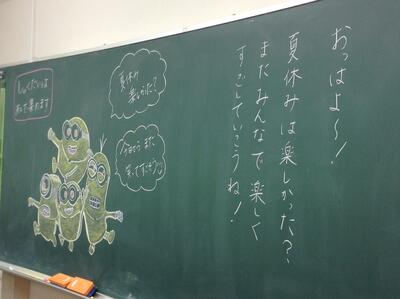 おっはよ〜!
夏休みは楽しかった?
またみんなで楽しく
すごしていこうね!
夏休み
楽しかった?
今日から また
しゅくだいは
あとで集めます